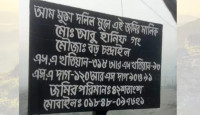 আম মুক্তা দলিল মুলে এই জমির মালিক
মোঃ আবু হানিফ গং
মৌজাঃ বড় চন্দ্রাইল
এস.এ খতিয়ান-৩১৪ আর এস খতিয়ান-৯০
এস.এ দাগ-১২০ আর এস দাগ ৩০৭ ৯১
জমির পরিমানঃ ৪২ শতাংশ
মোবাইলঃ ০১৮৪৮-০৯৭৬২১